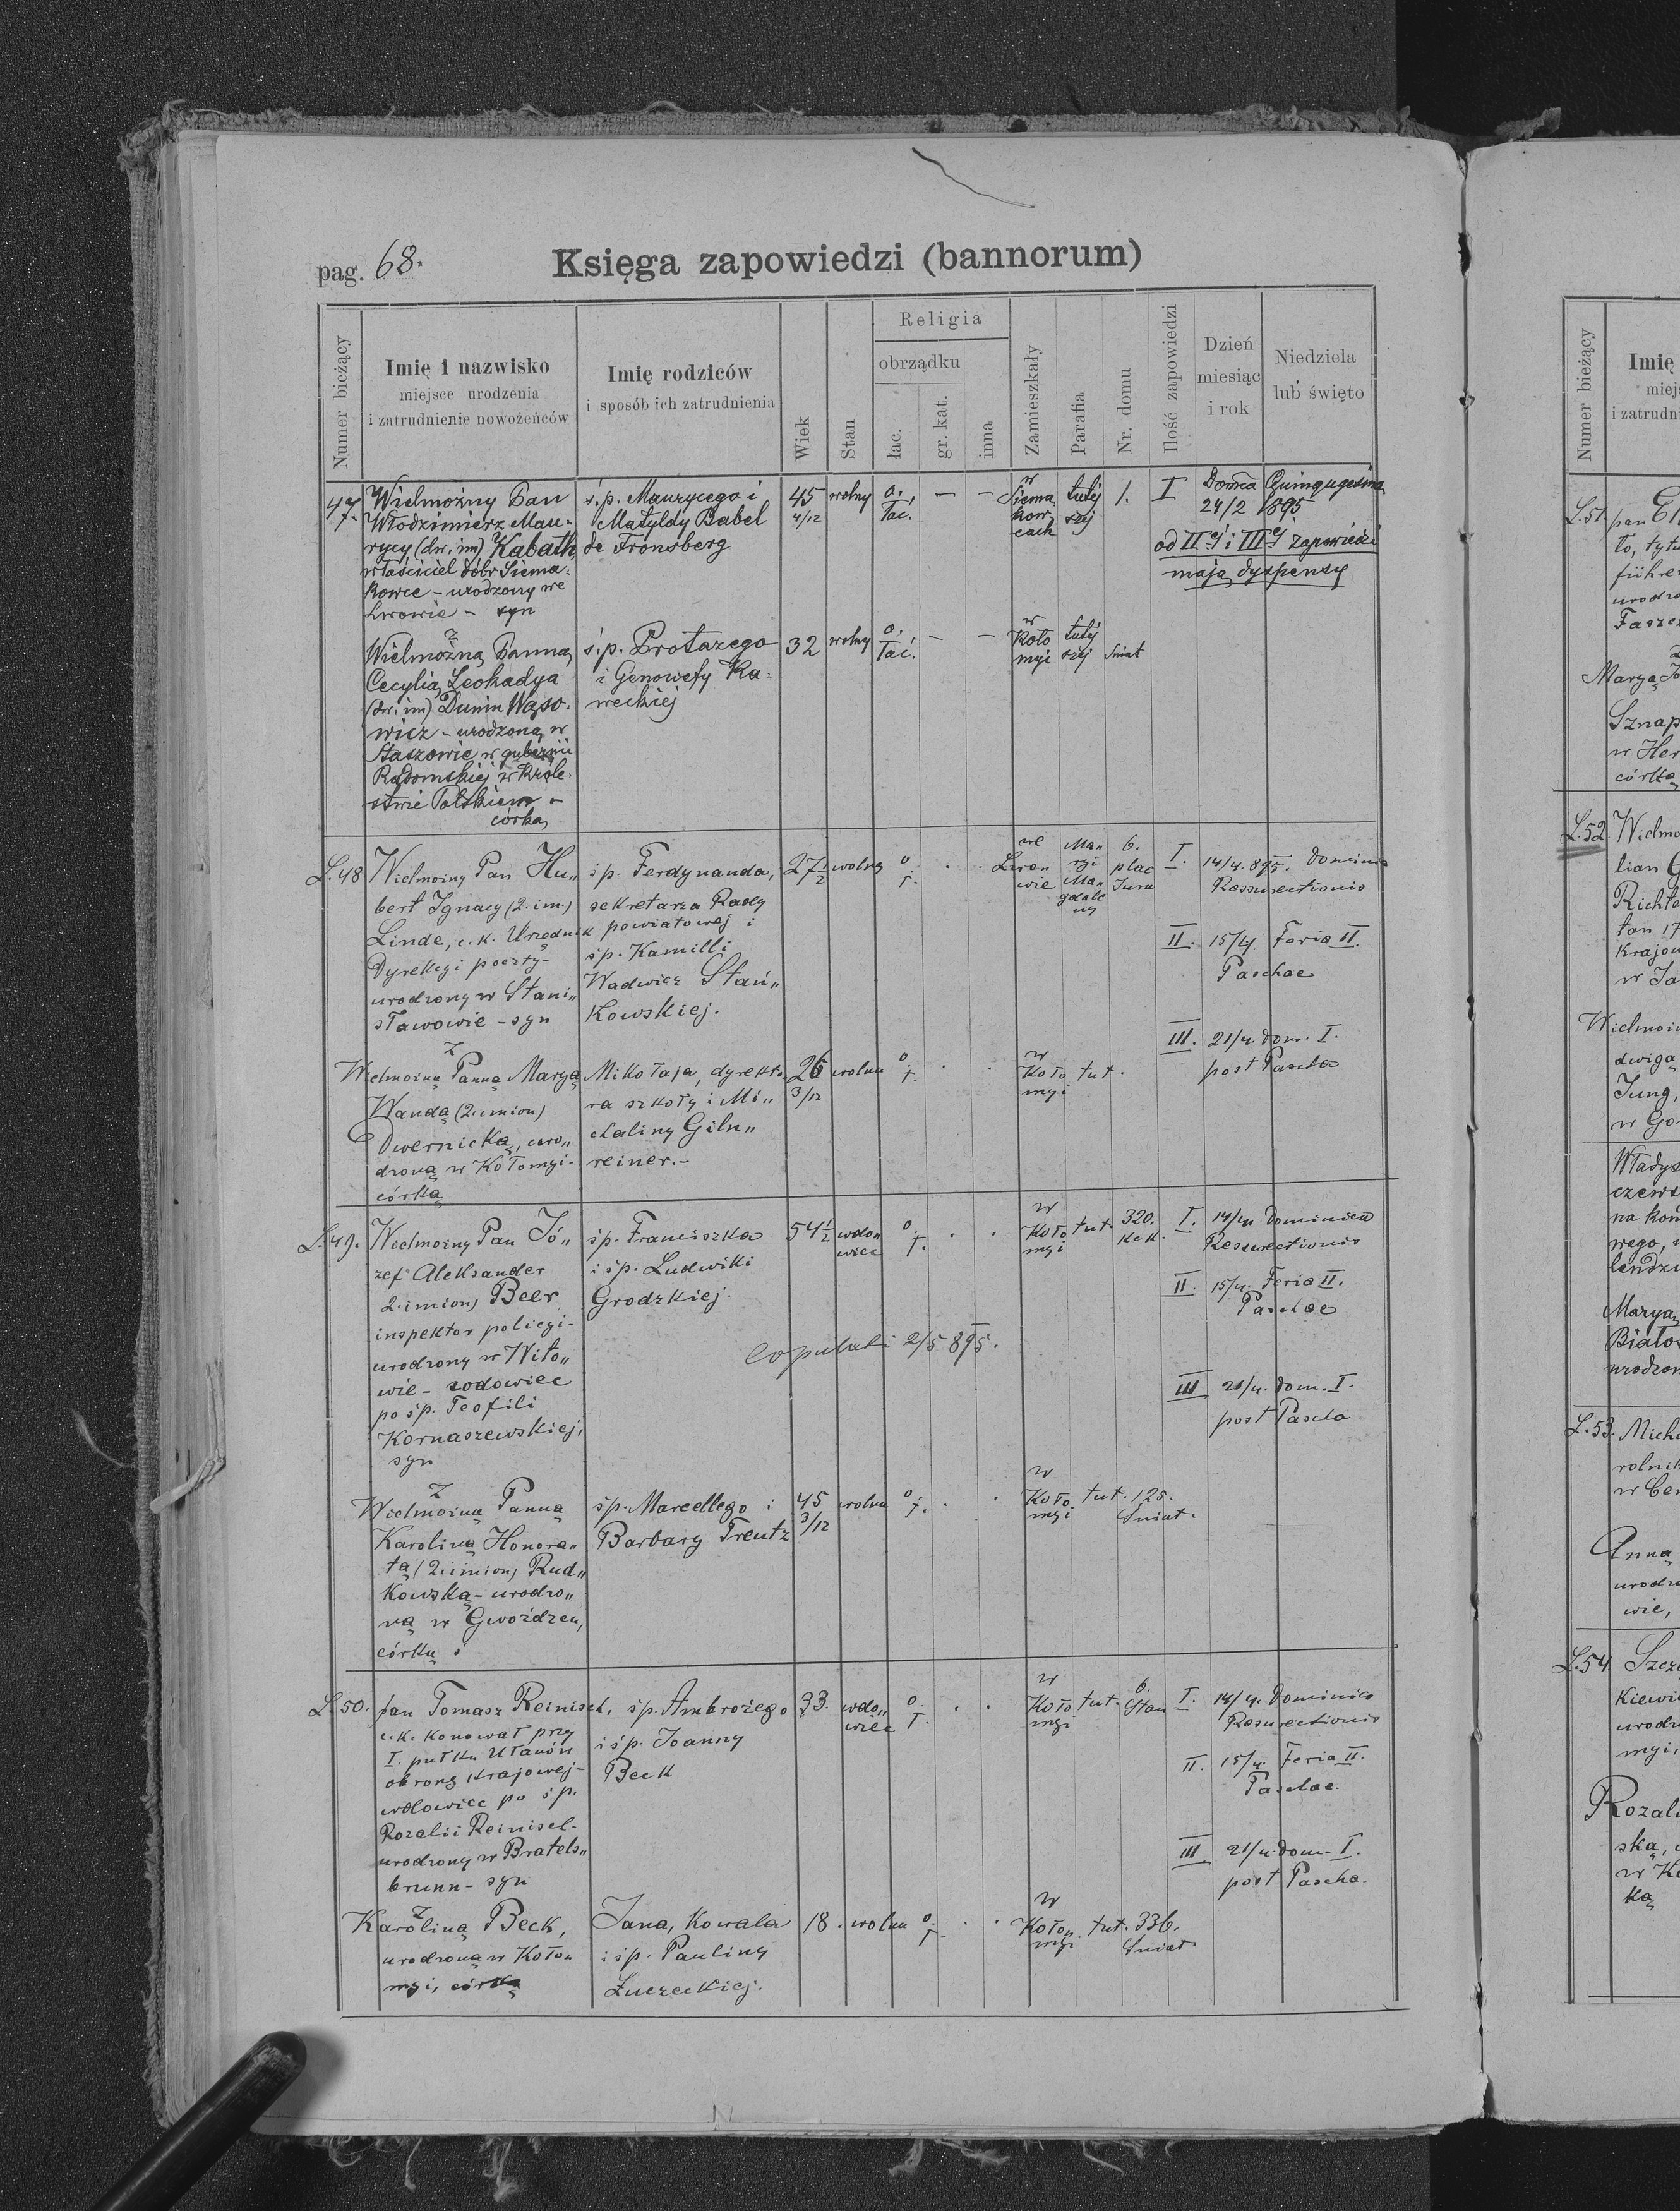 pag. 68.
Księga zapowiedzi (bannorum)
Numer bieżący
Imię i nazwisko
miejsce urodzenia
i zatrudnienie nowożeńców
Imię rodziców
i sposób ich zatrudnienia
Wiek
Stan
Religia
obrządku
łac.
gr. kat.
inna
Zamieszkały
Parafia
Nr. domu
Ilość zapowiedzi
Dzień
miesiąc
i rok
Niedziela
lub święto
47.
Wielmożny Pan
Włodzimierz Mau-
rycy (dw. im) Kabath
właściciel dóbr Siema-
kowce - urodzony we
Lwowie - syn
ś.p. Maurycego i
Matyldy Babel
de Fronsberg
45
4/12
wolny
o.
łac.
—
—
w
Siema
kow-
cach
tutej
szej
1.
I
Domca Quinqugesima
24/2 1895
od IIej i IIIej zapowiedzi
mają dyspensę
z
Wielmożną Panną
Cecylią Leokadya
(dw. im) Dunin Wąso-
wicz - urodzoną w
Staszowie w gubernii
Radomskiej w Króle-
stwie Polskiem -
córką
ś.p. Protazego
i Genowefy Ka-
weckiej
32
wolny
o.
łac.
—
—
w
Koło
myi
tutej
szej
Śniat
L.48
Wielmożny Pan Hu„
bert Ignacy (2. im.)
Linde, c.k. Urzędnik
Dyrekcyi poczty-
urodzony w Stani„
sławowie - syn
śp. Ferdynanda,
sekretarza Rady
powiatowej i
śp. Kamilli
Wadwicz Stań„
kowskiej.
27 1/2
wolny
o
ł.
we
Lwo
wie
Ma
ryi
Ma
gdale
ny
6.
plac
Jura
I.
14/4. 895. Dominica
Ressurectionis
II.
15/4. Feria II.
Paschae
III.
21/4. dom. I.
post Pascha
z
Wielmożną Panną Maryą
Wandą (2. imion)
Dwernicką, uro„
dzoną w Kołomyi-
córką
Mikołaja, dyrekto
ra szkoły i Mi„
chaliny Giln„
reiner.-
26
3/12
wolna
o
ł.
w
Koło
myi
tut.
L.49.
Wielmożny Pan Jó„
zef Aleksander
2. imion) Beer
inspektor policyi-
urodzony w Wito„
wie -
po śp. Teofili
Kornaszewskiej,
syn
śp. Franciszka
i śp. Ludwiki
Grodzkiej.
54 1/2
wdo„
wiec
o.
ł.
w
Koło
myi
tut.
320.
KcK.
I.
14/4 Dominica
Ressurectionis
II.
15/4. Feria II.
Paschae
copulati 2/5 895.
III
21/4. dom. I.
post Pascha
z
Wielmożną Panną
Karoliną Honora„
tą (2. imion) Rud„
kowską - urodzo„
ną w Gwoźdzcu,
córką
śp. Marcellego i
Barbary Trentz
45
3/12
wolna
o
ł.
w
Koło
myi
tut.
125.
Śniat.
L.50.
pan Tomasz Reinisch,
c.k. konował przy
I. pułku Ułanów
obrony krajowej-
wdowiec po śp.
Rozalii Reinisch-
urodzony w Bratels„
brunn - syn
śp. Ambrożego
i śp. Joanny
Beck
33.
wdo„
wiec
o.
ł.
w
Koło
myi
tut.
6.
Stan
I.
14/4. Dominica
Resurectionis
II.
15/4. Feria II.
Paschae.
III
21/4. dom. I.
post Pascha.
z
Karoliną Beck,
urodzoną w Koło„
myi, córką
Jana, kowala
i śp. Pauliny
Żurzeckiej.
18.
wolna
o
ł.
w
Koło„
myi
tut.
336.
Śniat
Numer bieżący
Imię
miej
i zatrudn
L.51
pan
to, tytu
führe
urodzo
Sznap
w Her
córką
L.52
Wielmo
lian
Richte
tan 17
krajow
w Ja
Wielmoż
dwigą
Jung,
w Go
Władys
czews
na kon
wego,
Maryą
Biało
urodzon
L.53.
Micha
rolnik
Anną
urodz
wie,
L.54
Szcz
kiewi
urodz
myi,
Rozali
ską,
w Ko
ką